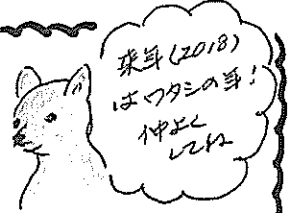 来年(2018)
はワタシの年!
仲よく
してね